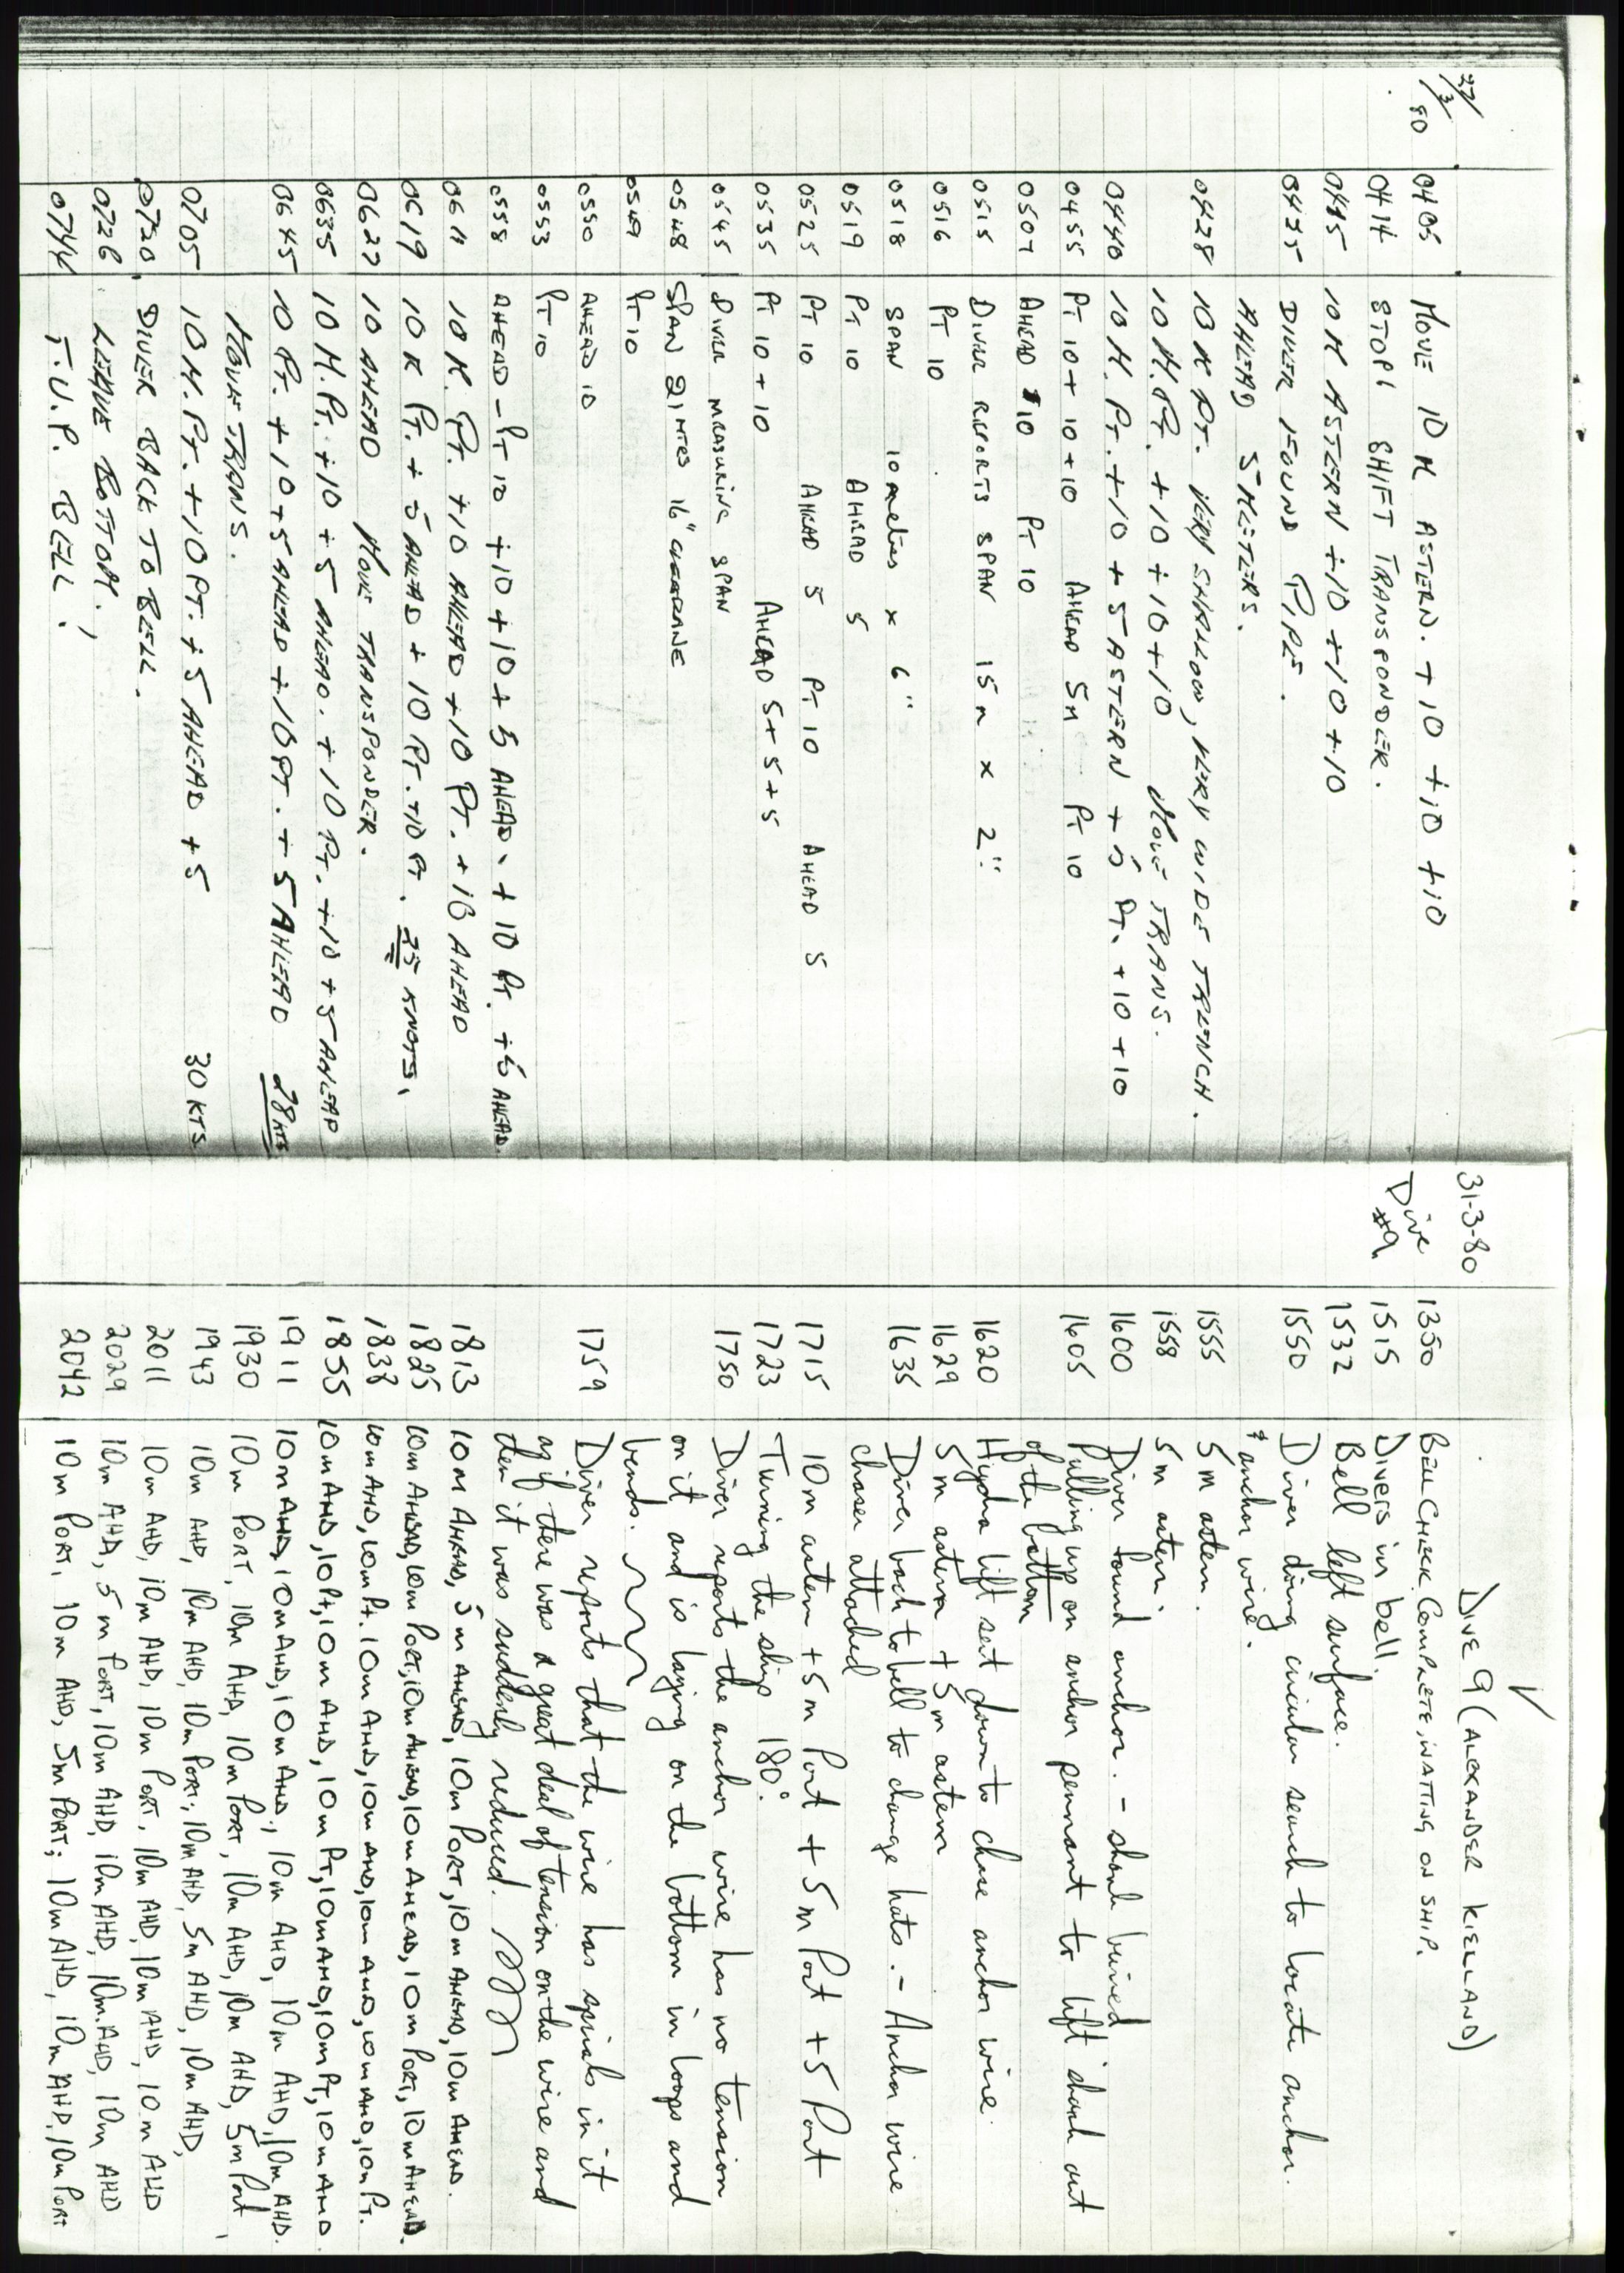 27/3/80
0405 MOVE 10 M ASTERN. +10 +10 +10
0414 STOP! SHIFT TRANSPONDER.
0415 10 M ASTERN +10 +10 +10
0425 DIVER FOUND PIPE.
AHEAD 5 METERS.
0428 10 M PT. VERY SHALLOW, VERY WIDE TRENCH.
10 M. PT. +10 +10 +10 MOVE TRANS.
0440 10 M. PT. +10 + 5 ASTERN + 5 PT. +10 +10
0455 PT 10 + 10 +10 AHEAD 5M PT 10
0507 AHEAD 10 PT 10
0515 DIVER REPORTS SPAN 15 M x 2"
0516 PT 10
0518 SPAN 10 metres x 6"
0519 PT 10 AHEAD 5
0525 PT 10 AHEAD 5 PT 10 AHEAD 5
0535 PT 10 + 10 AHEAD 5+5+5
0545 DIVER MEASURING SPAN
0548 SPAN 21 MTES 16" CLEARANE
0549 PT 10
0550 AHEAD 10
0553 PT 10
0558 AHEAD - PT 10 +10 +10 + 5 AHEAD. + 10 PT. +5 AHEAD.
0611 10 M. PT. +10 AHEAD +10 PT. +10 AHEAD
0619 10 M PT. + 5 AHEAD + 10 PT. +10 PT. 25 KNOTS.
0627 10 AHEAD MOVE TRANSPONDER.
0635 10 M. PT. +10 +5 AHEAD. +10 PT. +10 +5 AHEAD
0645 10 PT. +10 +5 AHEAD +10 PT. + 5 AHEAD 28 KTS
MOVE TRANS.
0705 10 M. PT. +10 PT. +5 AHEAD +5 30 KTS
0720 DIVER BACK TO BELL.
0726 LEAVE BOTTOM.
0744 T.U.P. BELL.
31-3-80
Dive #9
DIVE 9 (ALEXANDER KIELLAND)
1350 BELL CHECK COMPLETE, WATING ON SHIP.
1515 Divers in bell.
1532 Bell left surface.
1550 Diver doing circular search to locate anchor.
& anchor wire.
1555 5 m astern.
1558 5 m astern.
1600 Diver found anchor. - shank buried
1605 Pulling up on anchor pennant to lift shank out
of the bottom
1620 Hydra lift sent down to chase anchor wire.
1629 5 m astern + 5 m astern
1635 Diver back to bell to change hats. - Anchor wire
chaser attached
1715 10 m astern + 5 m Port + 5 m Port + 5 Port
1723 Turning the ship 180°.
1750 Diver reports the anchor wire has no tension
on it and is laying on the bottom in loops and
bends.
1759 Diver reports that the wire has spirals in it
as if there was a great deal of tension on the wire and
then it was suddenly reduced.
1813 10 M AHEAD, 5 m AHEAD, 10m PORT, 10 m AHEAD, 10m AHEAD.
1825 10m AHEAD, 10m PORT, 10m AHEAD, 10m AHEAD, 10m PORT, 10m AHEAD.
1838 10m AHD, 10m Pt. 10m AHD, 10m AHD, 10m AHD, 10m AHD, 10m Pt.
1855 10m AHD, 10 Pt, 10m AHD, 10m PT, 10m AHD, 10m PT, 10m AHD
1911 10m AHD, 10m AHD, 10m AHD., 10m AHD, 10m AHD, 10m AHD.
1930 10m PORT, 10m AHD, 10m PORT, 10m AHD, 10m AHD, 5m Port,
1943 10m AHD, 10m AHD, 10m PORT, 10m AHD, 5m AHD, 10m AHD,
2011 10m AHD, 10m AHD, 10m PORT, 10m AHD, 10m AHD, 10m AHD
2029 10m AHD, 5m PORT, 10m AHD, 10m AHD, 10m.AHD, 10m AHD
2042 10m PORT, 10m AHD, 5m PORT, 10m AHD, 10m AHD, 10m PORT